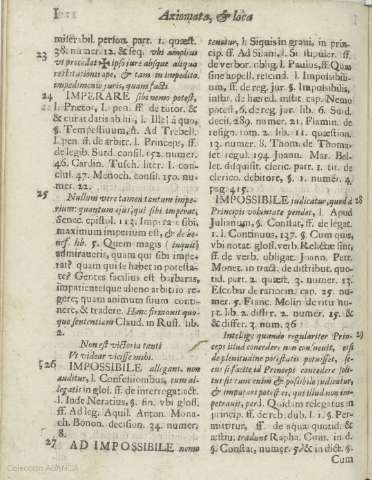 Axiomata, & loca
miserabil. person. part. 1. quæst.
23 38. numer. 12. & seq. vbi amplius
vt procedat ipso iure absque aliqua
restitutionis ope, & tam in impedito.
impedimenti iuris, quam facti.
24 IMPERARE sibi nemo potest,
l. Prætor, l. pen. ff. de tutor. &
& curat datis ab his, l. Ille à quo,
§. Tempestiuum, ff. Ad Trebell.
l. pen. ff. de arbitr. l. Princeps, ff.
de legib. Surd. consil. 152. numer.
46. Cardin. Tusch. litter. I. con-
clus. 47. Menoch. consil. 150. nu-
mer. 22.
25 Nullum vero tamen tantum impe-
rium: quantum ejus, qui sibi imperat,
Senec. epistol. 113. Imperare sibi,
maximum imperium est, & de be-
nef. lib. 5. Quem magis (inquit)
admiraueris, quam qui sibi impe-
rat? quam qui se habet in potesta-
te? Gentes facilius est barbaras,
impatientesque alieno arbitrio re-
gere; quam animum suum conti-
nere, & tradere. Hanc firmant quo-
que sententiam Claud. in Ruff. lib.
2.
Non est victoria tanti
Vt videar vicisse mihi.
26 IMPOSSIBILE allegans, non
auditur, l. Confessionibus, cum al-
legatis in glos. ff. de interrogat. act.
l. Inde Neratius, §. fin. vbi glos.
ff. Ad leg. Aquil. Anton. Monach.
Bonon. decision. 34. numer.
8.
27 AD IMPOSSIBILE nemo
tenetur, l. Siquis in graui, in prin-
cip. ff. Ad Silani, l. Si stipuler. ff.
de verbor. oblig. l. Paulus, ff. Quando
sine appell. rescind. l. Impossibili-
um, ff. de reg. jur. §. Impossibilis,
instit. de hæred. instit. cap. Nemo
potest, 6. de reg. jur. lib. 6. Surd.
decis. 289. numer. 21. Flamin. de
resign. tom. 2. lib. 11. quæstion.
13. numer. 8. Thom. de Thomas-
set. regul. 194. Joann. Mar. Bel-
let. disquisit. cleric. part. 1. tit. de
clerico. debitore, §. 1. numer. 4.
pag. 415.
IMPOSSIBILE judicatur, quod à 28
Principis voluntate pendet, l. Apud
Julianum, §. Constat, ff. de legat.
1. l. Continuus, 137. §. Cum quis,
vbi notat. gloss. verb. Relictæ sint,
ff. de verb. obligat. Joann. Petr.
Monet. in tract. de distribut. quo-
tid. part. 2. quæst. 3. numer. 13.
Escobar de ratiocin. cap. 25. nu-
mer. 5. Franc. Molin de ritu nu-
pt. lib. 2. different. 2. numer. 15. &
& differ. 3. num. 36
Intellige quando regulariter Prin- 29
ceps illud concedere non consueuit, etsi
de plenitudine potestatis potuisset, se-
cus si facile id Princeps concedere soli-
tus sit tunc enim & possibile judicatur,
& imputari potest ei, qui illud non im-
petrauit, perd. Quidam relegatus in
princip. ff. de reb. dub. l. 1. §. Per-
mittitur, ff. de aqua quotid. &
æstiu. tradunt Rapha. Cum. in d.
§. Constat, numer. 5. & in dict. §.
Cum